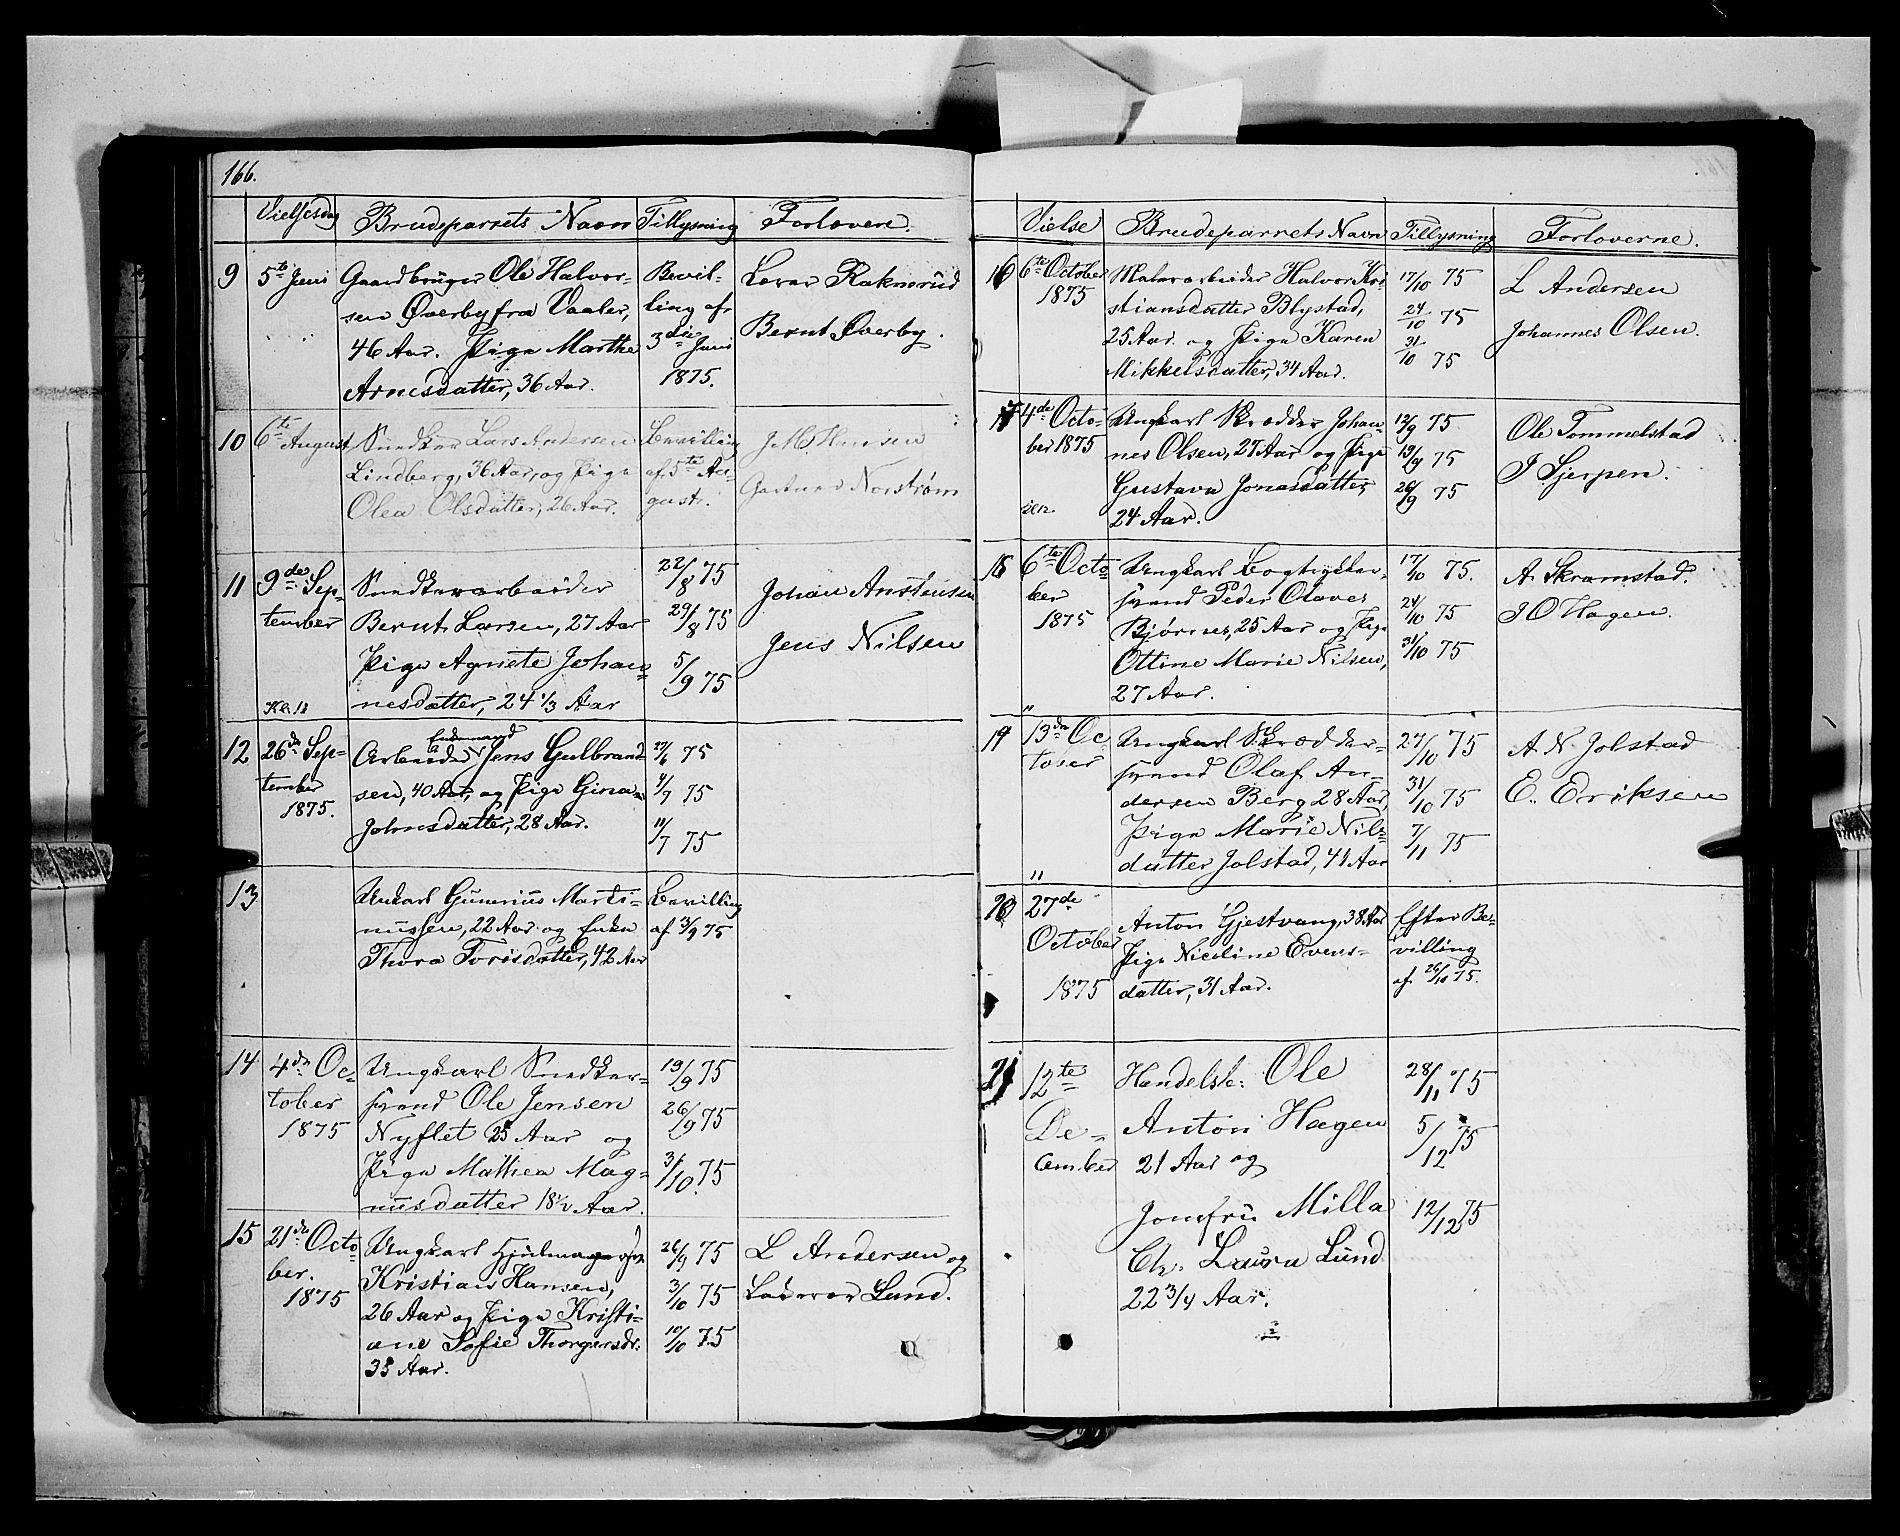 166.
Vielsesdag Brudeparrets Navn Tillysning Forlovere.
9 5te Juni Gaardbruger Ole Halvor- Bevil- Lovar Raknerud
sen Øverby fra Vaaler, ling af Bernt Øverby.
46 Aar. Pige Marthe 3die Juni
Arnesdatter, 36 Aar. 1875.
10 6te August Snedker Lars Andersen Bevilling J. M. Hansen
Lindberg, 36 Aar, og Pige af 5te Au- Gartner Norstrøm
Olea Olsdatter, 26 Aar. gust.
11 9de Sep- Snedkerarbeider 22/8 75 Johan Anstensen
tember Bernt Larsen, 27 Aar 29/8 75 Jens Nilsen
Pige Agnete Johan- 5/9 75
Kl. 11 nesdatter, 24 1/3 Aar
12 26de Sep- Arbeider Enkemand Jens Gulbrand- 27/6 75
tember sen, 40 Aar, og Pige Gina 4/7 75
1875. Johnsdatter, 28 Aar. 11/7 75
13 Unkarl Gunerius Marti- Bevilling
nussen, 22 Aar og Enke af 3/9 75
Thora Torisdatter, 42 Aar
14 4de Oc- Ungkarl Snedker- 19/9 75
tober svend Ole Jensen 26/9 75
1875 Nyflet 25 Aar og
Pige Mathea Mag- 3/10 75
nusdatter 18 1/2 Aar.
15 21de Octo- Ungkarl Hjulmager 26/9 75 L Andersen og
ber. Kristian Hansen, 3/10 75 Lund.
1875 26 Aar og Pige Kristi- 10/10 75
ane Sofie Thorgersdr.
35 Aar.
Vielse Brudeparrets Navn Tillysning Forloverne.
16 6te October Halvor Kri- 17/10 75 L Andersen
1875 stiansdatter Blystad, 24/10 75 Johannes Olsen.
25 Aar og Pige Karen 31/10 75
Mikkelsdatter, 34 Aar.
17 4de Octo- Ungkarl Skrædder Johan- 12/9 75 Ole Tommelstad
ber 1875 nes Olsen, 27 Aar og Pige 19/9 75 J Sjerpen.
Gustava Jonasdatter, 26/9 75
24 Aar.
18 6te Octo- Ungkarl Bogtrykker- 17/10 75. A. Skramstad.
ber svend Peder Olaves 24/10 75 J O Hagen.
1875 Bjørnes, 25 Aar og Pige 31/10 75
Ottine Marie Nilsen,
" 27 Aar.
19 13de Oc- Ungkarl Skrædder- 27/10 75 A. N. Jolstad
tober svend Olaf An- 31/10 75 E. Eriksen
dersen Berg 28 Aar,
Pige Marie Nils- 7/11 75
" datter Jolstad, 41 Aar
20 27de Anton Gjestvang, 38 Aar Efter Be-
October Pige Nicoline Evens- villing
1875 datter, 31 Aar. af 26/10 75.
21 12te Handelsb: Ole 28/11 75
De- Anton Hagen 5/12 75
cember 21 Aar og
Jomfru Milla 12/12 75
Ch. Laura Lund
22 3/4 Aar.